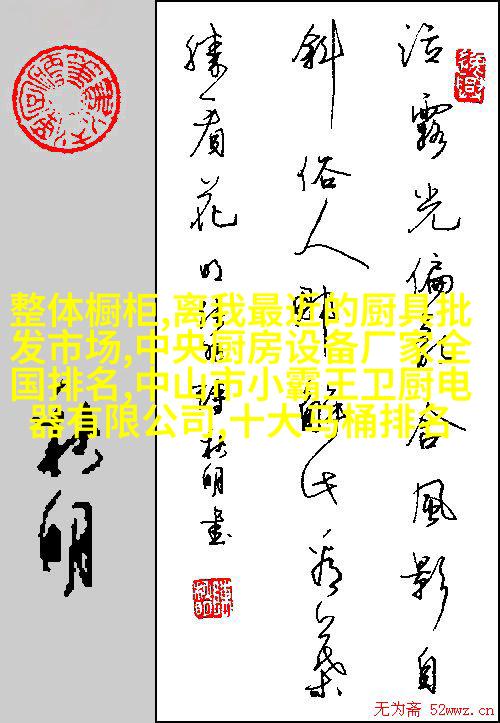 整体橱柜,离我最近的厨具批
发市场,中央厨房设备厂家全
国排名,中山市小霸王卫厨电
器有限公司,十大马桶排名
沾露光偏亂含風影自
斜俗人那解此看葉
勝看花 秋明書
秋明
无为斋 52wwz.cn